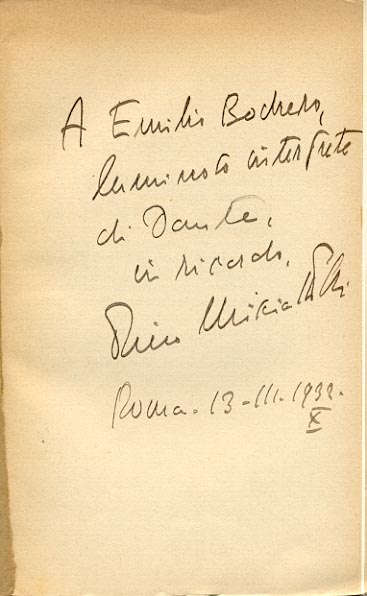 A Emilio Bodrero,
luminoso interprete
di Dante,
in ricordo,
Roma - 13 - III - 1932 -
X